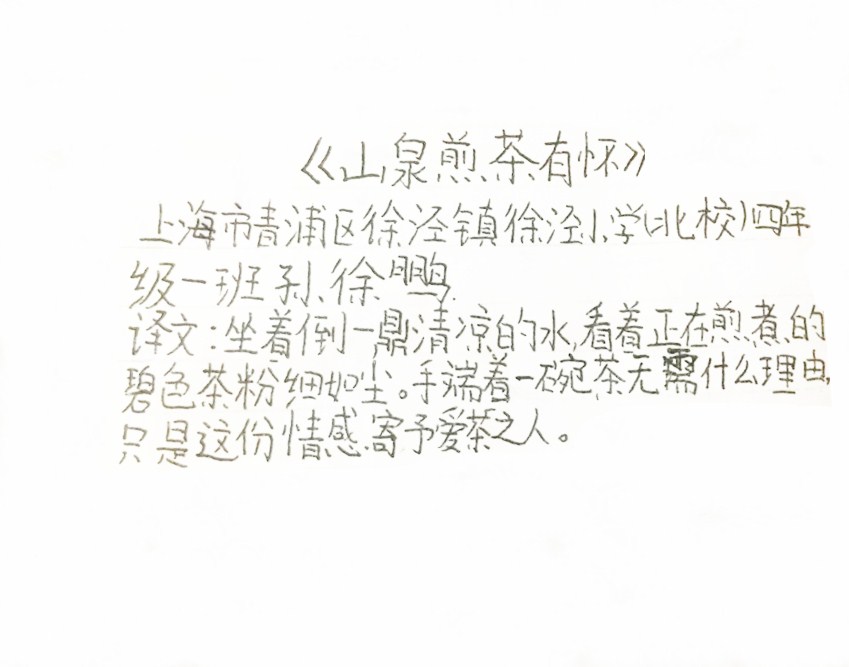 《山泉煎茶有怀》
上海市青浦区徐泾镇徐泾小学(北校)四年
级一班孙徐鹏
译文:坐着倒一鼎清凉的水,看着正在煎煮的
碧色茶粉细如尘。手端着一碗茶无需什么理由,
只是这份情感寄予爱茶之人。